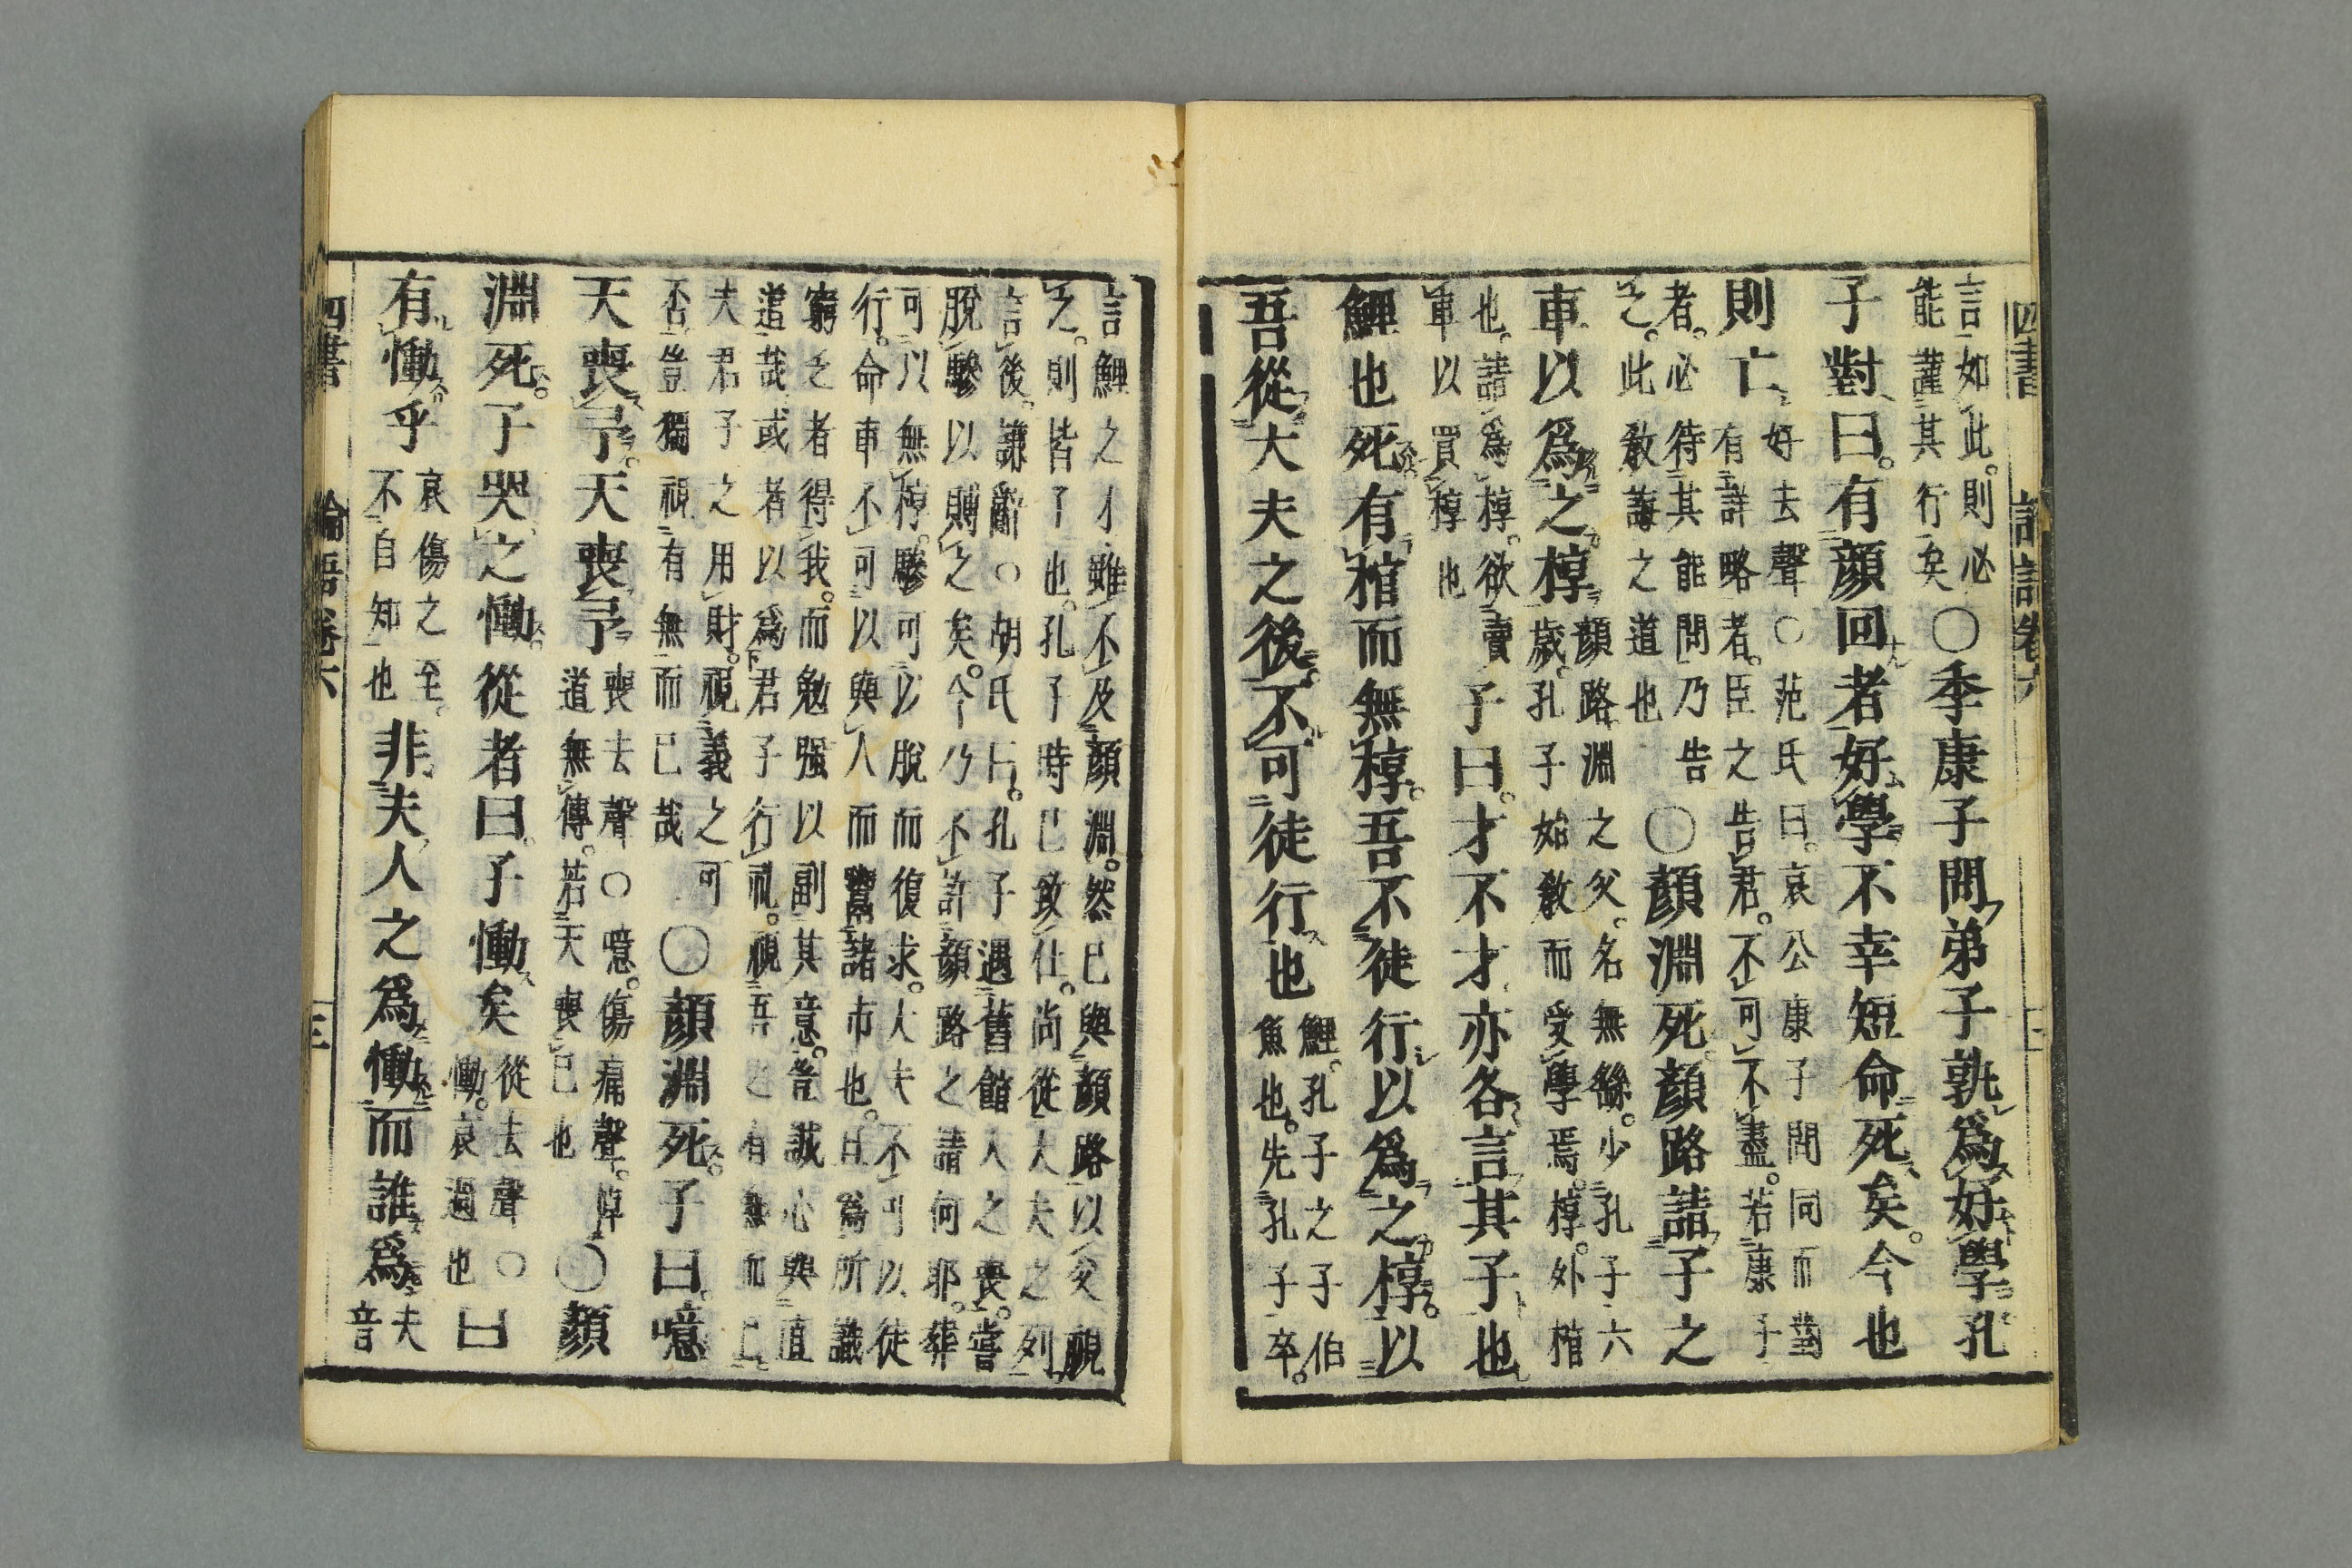 言如此。則必
能謹其行矣
〇季康子問弟子孰爲好學孔
子對曰。有顔回者好學不幸短命死矣。今也
則亡
好去聲〇范氏曰。哀公康子問同而對
有詳略者。臣之告君。不可不盡。若康子
者。必待其能問乃告
之。此敎誨之道也
〇顔淵死顔路請子之
車以爲之椁
顔路淵之父。名無繇。少孔子六
歲。孔子始敎而受學焉。椁。外棺
也。請爲椁。欲賣
車以買椁也
子曰。才不才亦各言其子也
鯉也死有棺而無椁。吾不徒行以爲之椁。以
吾從大夫之後。不可徒行也
鯉。孔子之子伯
魚也。先孔子卒。
言鯉之才雖不及顔淵。然已與顔路以父視
之。則皆子也。孔子時已致仕。尚從大夫之列
言後。謙辭〇胡氏曰。孔子遇舊館人之喪。嘗
脫驂以賻之矣。今乃不許顔路之請何耶。葬
可以無椁。驂可以脫而復求。大夫不可以徒
行。命車不可以與人而鬻諸市也。且爲所識
窮乏者得我。而勉强以副其意。豈誠心與直
道哉或者以爲君子行禮。視吾之有無而已。
夫君子之用財。視義之可
否豈獨視有無而已哉
〇顔淵死。子曰。噫
天喪予。天喪予
喪去聲〇噫。傷痛聲。悼
道無傳。若天喪已也
〇顔
淵死。子哭之慟。從者曰。子慟矣
從去聲〇
慟。哀過也
曰
有慟乎
哀傷之至。
不自知也
非夫人之爲慟而誰爲
夫
音
四書
論語卷六
三